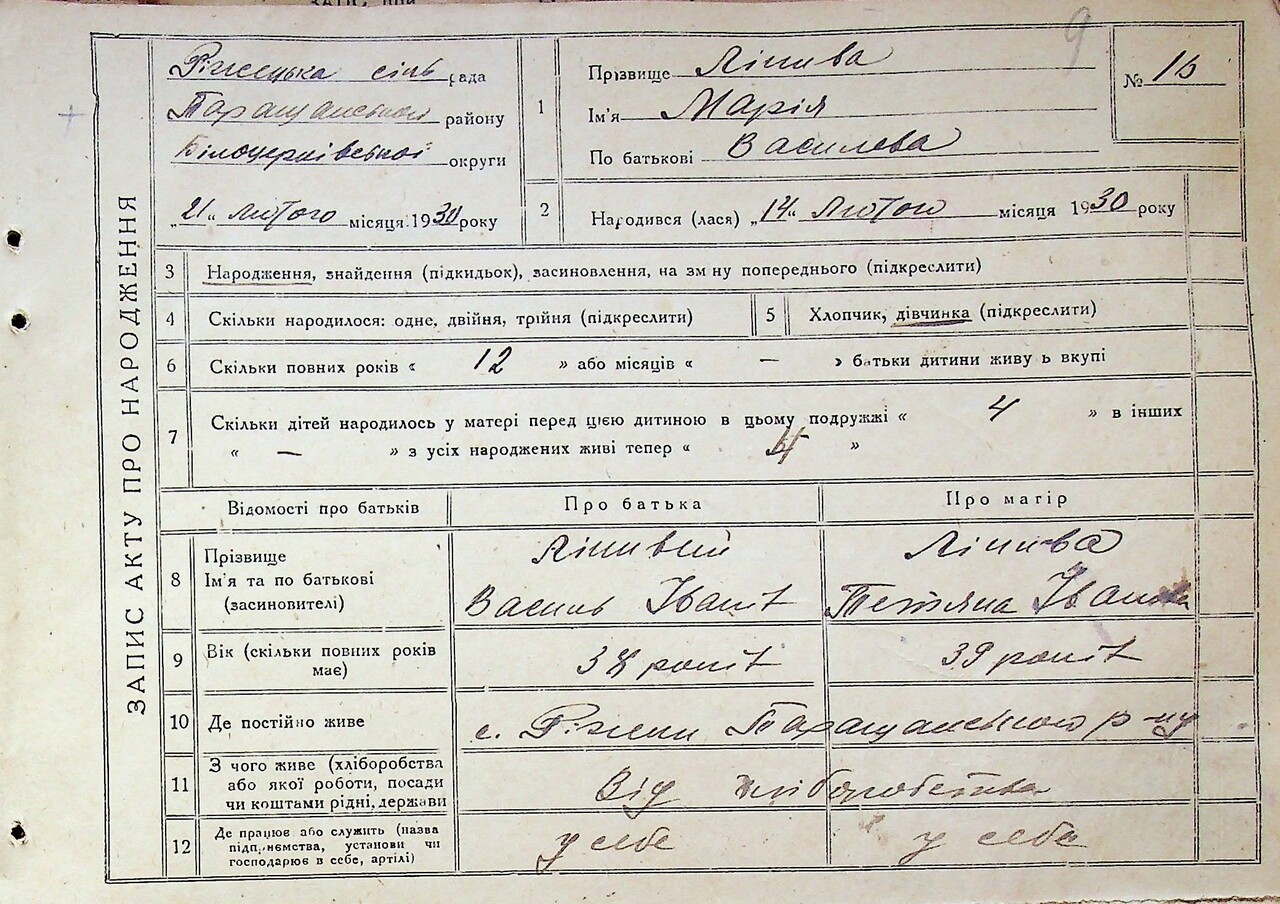 ЗАПИС АКТУ ПРО НАРОДЖЕННЯ
9
Ріжецька сіль рада
Таращанського району
Білоцерківської округи
„21“ Лютого місяця 1930 року
1
Прізвище Лінива
Ім'я Марія
По батькові Василева
№ 16
2
Народився (лася) „14“ Лютого місяця 1930 року
3 Народження, знайдення (підкидьок), засиновлення, на зм ну попереднього (підкреслити)
4 Скільки народилося: одне, двійня, трійня (підкреслити)
5 Хлопчик, дівчинка (підкреслити)
6 Скільки повних років « 12 » або місяців « — » батьки дитини живу ь вкупі
7 Скільки дітей народилось у матері перед цією дитиною в цьому подружжі « 4 » в інших
« — » з усіх народжених живі тепер « 4 »
Відомості про батьків
Про батька
Про матір
8
Прізвище
Ім'я та по батькові
(засиновителі)
Лінивий
Василь Іванів
Лінива
Тетяна Іванівна
9
Вік (скільки повних років
має)
38 років
39 років
10 Де постійно живе
с. Ріжки Таращанського р-ну
11
З чого живе (хліборобства
або якої роботи, посади
чи коштами рідні, держави
Від хліборобства
12
Де працює або служить (назва
підприємства, установи чи
господарює в себе, артілі)
у себе
у себе